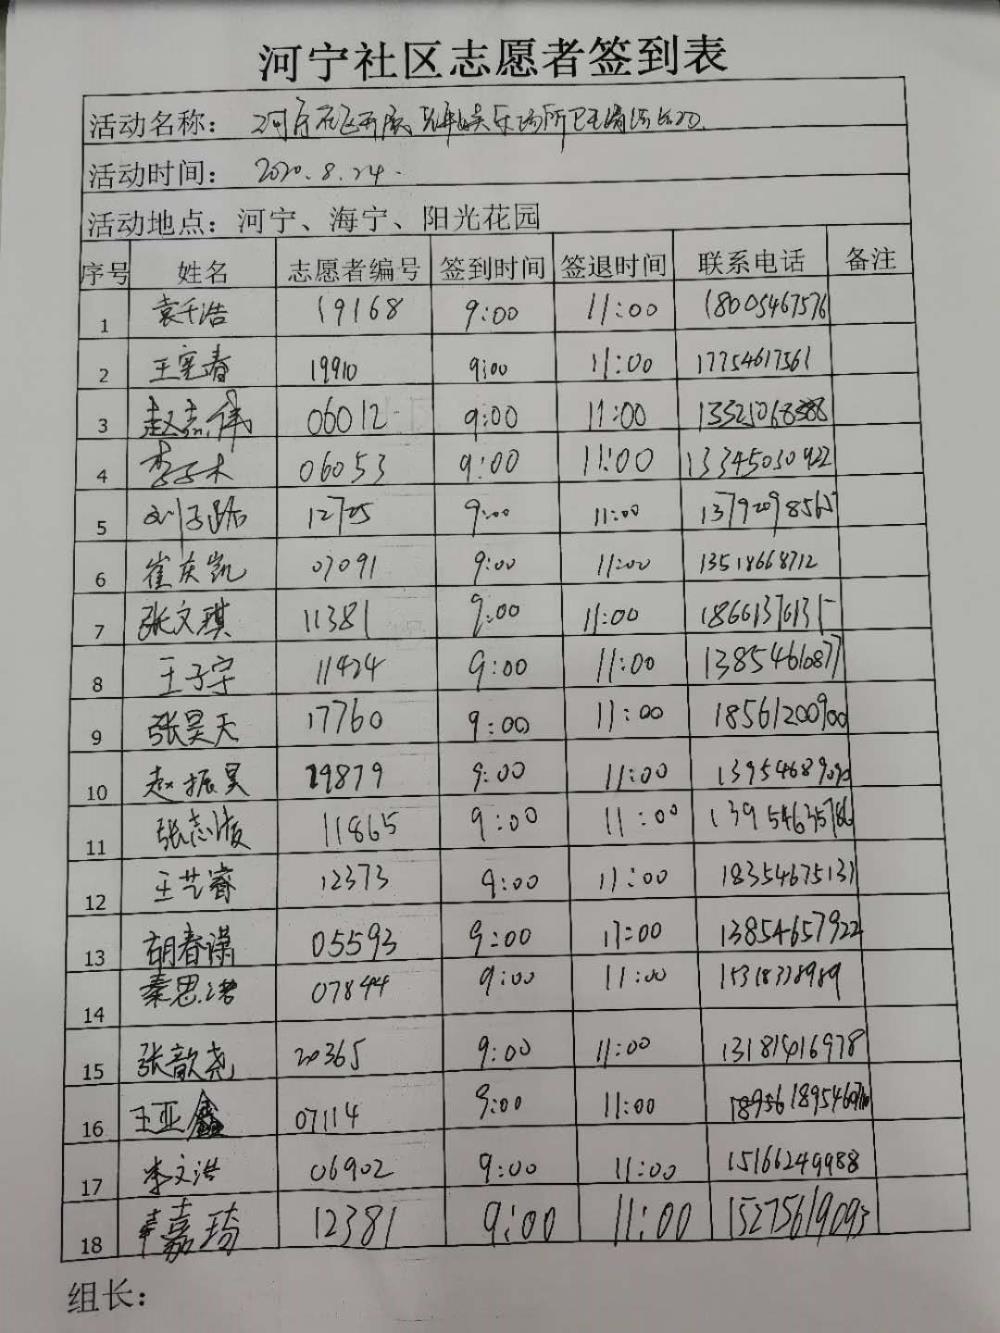 河宁社区志愿者签到表
活动名称：河宁社区开展 娱乐场所卫生清洁活动
活动时间：2020.8.24.
活动地点：河宁、海宁、阳光花园
序号 姓名 志愿者编号 签到时间 签退时间 联系电话 备注
1 袁千浩 19168 9:00 11:00 18005467576
2 王宪春 19910 9:00 11:00 17754617561
3 赵志伟 06012 9:00 11:00
4 李子木 06053 9:00 11:00 13345030922
5 刘子路 12725 9:00 11:00 13792098565
6 崔庆凯 07091 9:00 11:00 13518668712
7 张文琪 11381 9:00 11:00
8 王子宇 11424 9:00 11:00 13854610877
9 张昊天 17760 9:00 11:00 18561200900
10 赵振昊 19879 9:00 11:00
11 张志波 11865 9:00 11:00 13954635786
12 王艺睿 12373 9:00 11:00 18354675131
13 胡春潇 05593 9:00 11:00 13854657922
14 秦思浩 07844 9:00 11:00 15318338989
15 张歆尧 20365 9:00 11:00 13181416978
16 王亚鑫 07114 9:00 11:00
17 李文浩 06902 9:00 11:00 15166249988
18 嘉琦 12381 9:00 11:00 15275619093
组长：